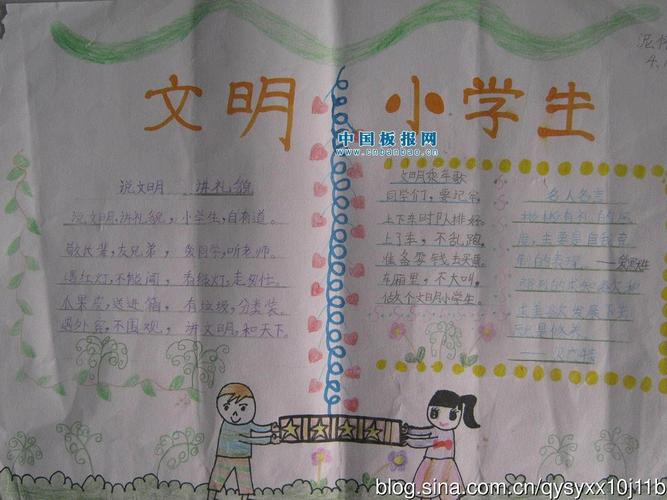 文明 小学生
中国板报网
www.cnbanbao.cn
说文明 讲礼貌
说文明,讲礼貌,小学生,自有道。
敬长辈,友兄弟,爱同学,听老师。
遇红灯,不能闯,看绿灯,走
小果皮,送进箱,有垃圾,分类装。
遇外宾,不围观,讲文明,和天下。
文明乘车歌
同学们,要记牢,
上下车时队排好。
上了车,不乱跑,
准备零钱去买票。
车厢里,不大叫,
做个文明小学生。
名人名言
彬彬有礼的风
度,主要是自我克
制的表现。——爱迪生
blog.sina.com.cn/qysyxx10j11b